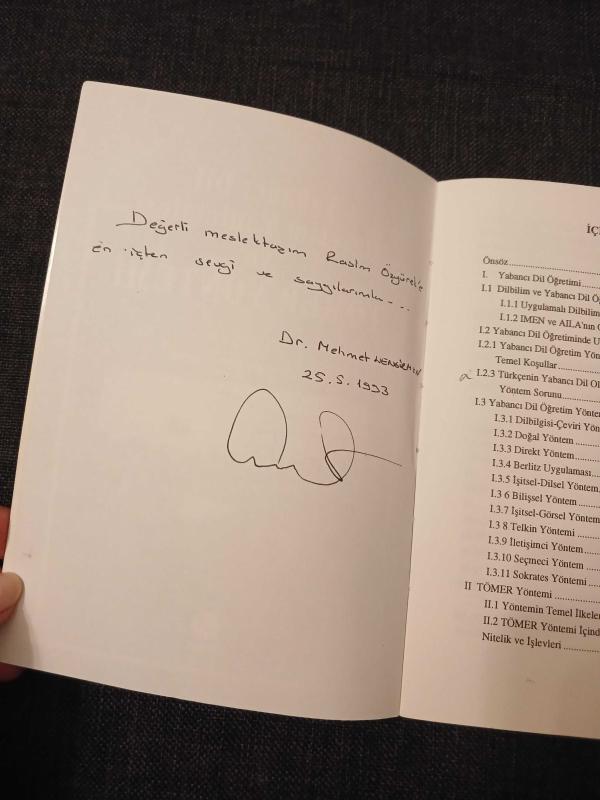 Değerli meslektaşım Rasim Özyürek'e
en içten sevgi ve saygılarımla...
Dr. Mehmet HENGİRMEN
25.5.1993
İÇ
Önsöz
I. Yabancı Dil Öğretimi
I.1 Dilbilim ve Yabancı Dil Ö
I.1.1 Uygulamalı Dilbilim
I.1.2 IMEN ve AILA'nın
I.2 Yabancı Dil Öğretiminde U
I.2.1 Yabancı Dil Öğretim Yön
Temel Koşullar
I.2.3 Türkçenin Yabancı Dil Ol
Yöntem Sorunu
I.3 Yabancı Dil Öğretim Yöntem
I.3.1 Dilbilgisi-Çeviri Yön
I.3.2 Doğal Yöntem
I.3.3 Direkt Yöntem
I.3.4 Berlitz Uygulaması
I.3.5 İşitsel-Dilsel Yöntem
I.3 6 Bilişsel Yöntem
I.3.7 İşitsel-Görsel Yöntem
I.3 8 Telkin Yöntemi
I.3.9 İletişimci Yöntem
I.3.10 Seçmeci Yöntem
I.3.11 Sokrates Yöntemi
II TÖMER Yöntemi
II.1 Yöntemin Temel İlkeler
II.2 TÖMER Yöntemi İçind
Nitelik ve İşlevleri